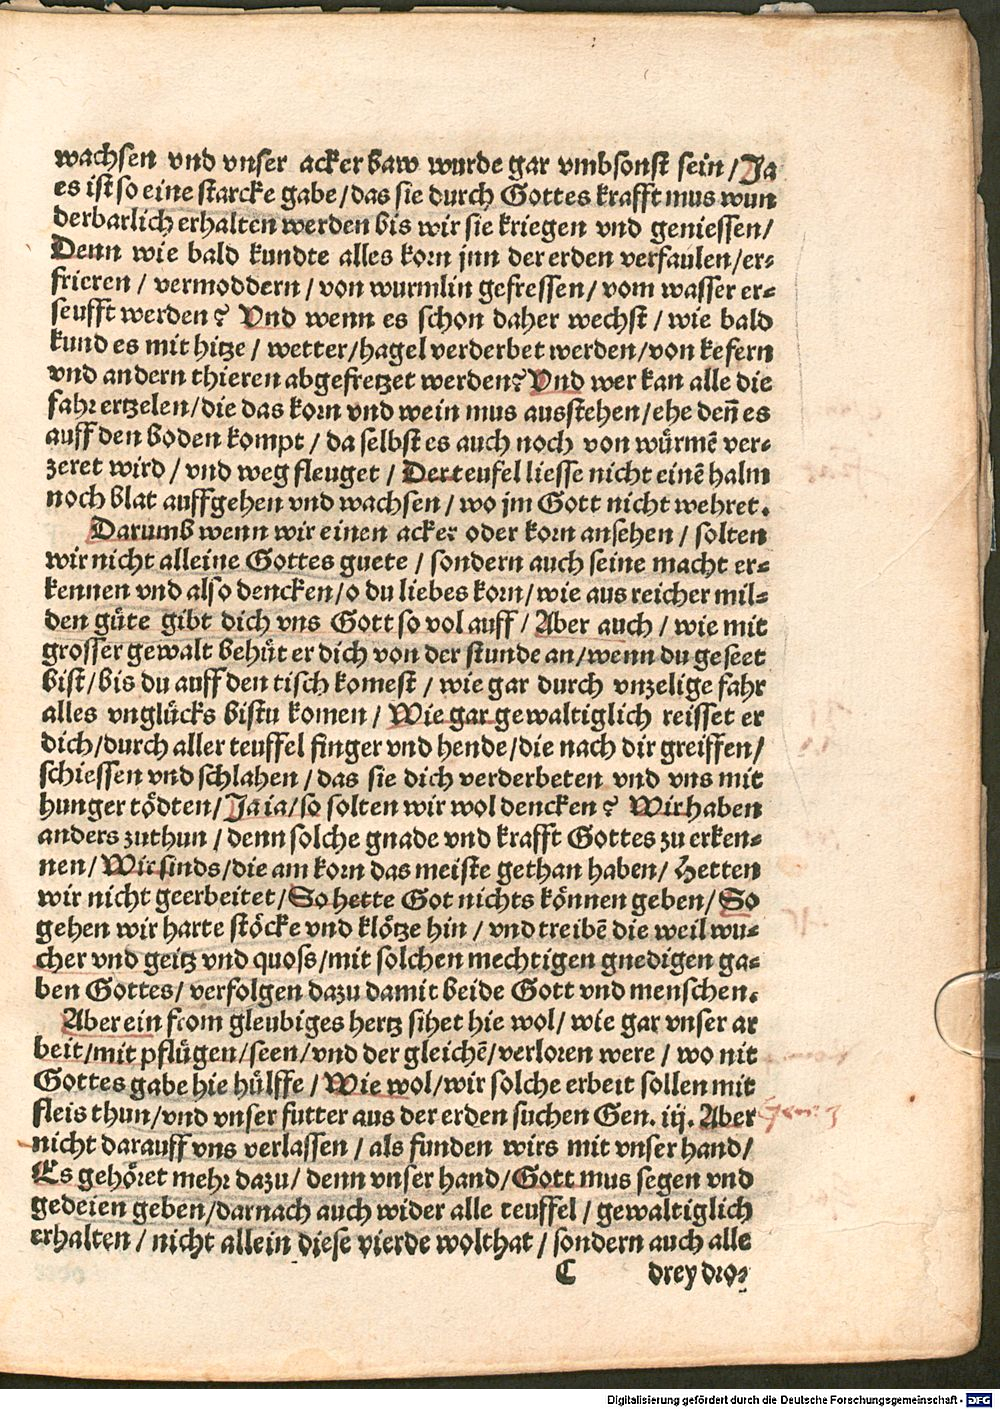 wachsen vnd vnser acker baw wurde gar vmbsonst sein / Ja
es ist so eine starcke gabe / das sie durch Gottes krafft mus wun
derbarlich erhalten werden bis wir sie kriegen vnd geniessen /
Denn wie bald kundte alles korn jnn der erden verfaulen / er⸗
frieren / vermoddern / von wurmlin gefressen / vom wasser er⸗
seufft werden? Vnd wenn es schon daher wechst / wie bald
kund es mit hitze / wetter / hagel verderbet werden / von kefern
vnd andern thieren abgefretzet werden? Vnd wer kan alle die
fahr ertzelen / die das korn vnd wein mus ausstehen / ehe deñ es
auff den boden kompt / da selbst es auch noch von würmẽ ver⸗
zeret wird / vnd weg fleuget / Der teufel liesse nicht einẽ halm
noch blat auffgehen vnd wachsen / wo jm Gott nicht wehret.
Darumb wenn wir einen acker oder korn ansehen / solten
wir nicht alleine Gottes guete / sondern auch seine macht er⸗
kennen vnd also dencken / o du liebes korn / wie aus reicher mil⸗
den güte gibt dich vns Gott so vol auff / Aber auch / wie mit
grosser gewalt behüt er dich von der stunde an / wenn du geseet
bist / bis du auff den tisch komest / wie gar durch vnzelige fahr
alles vnglücks bistu komen / Wie gar gewaltiglich reisset er
dich / durch aller teuffel finger vnd hende / die nach dir greiffen /
schiessen vnd schlahen / das sie dich verderbeten vnd vns mit
hunger tödten / Ja ia / so solten wir wol dencken? Wir haben
anders zuthun / denn solche gnade vnd krafft Gottes zu erken⸗
nen / Wir sinds / die am korn das meiste gethan haben / Hetten
wir nicht geerbeitet / So hette Got nichts können geben / So
gehen wir harte stöcke vnd klötze hin / vnd treibẽ die weil wu⸗
cher vnd geitz vnd quoss / mit solchen mechtigen gnedigen ga⸗
ben Gottes / verfolgen dazu damit beide Gott vnd menschen.
Aber ein from gleubiges hertz sihet hie wol / wie gar vnser ar
beit / mit pflügen / seen / vnd der gleichẽ / verloren were / wo nit
Gottes gabe hie hülffe / Wie wol / wir solche erbeit sollen mit
fleis thun / vnd vnser futter aus der erden suchen Gen. iij. Aber
Gen: 3
nicht darauff vns verlassen / als funden wirs mit vnser hand /
Es gehöret mehr dazu / denn vnser hand / Gott mus segen vnd
gedeien geben / darnach auch wider alle teuffel / gewaltiglich
erhalten / nicht allein diese vierde wolthat / sondern auch alle
C drey dro⸗
Digitalisierung gefördert durch die Deutsche Forschungsgemeinschaft - DFG